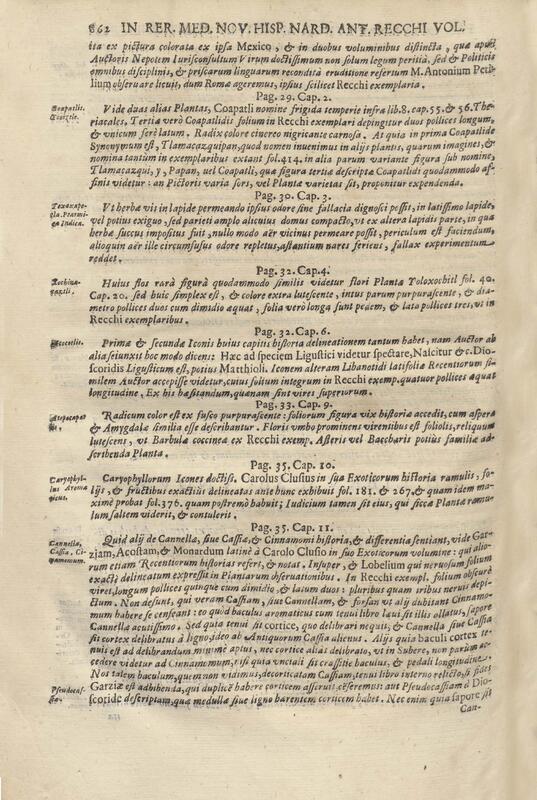 862 IN RER. MED. NOV. HISP. NARD. ANT. RECCHI VOL.
ita ex pictura colorata ex ipsa Mexico, & in duobus voluminibus distincta, quæ apud
Auctoris Nepotem Iurisconsultum Virum doctissimum non solum legum peritia, sed & Politicis
omnibus disciplinis, & priscarum linguarum recondita eruditione refertum M. Antonium Petilium
observare licuit, dum Romæ ageremus, ipsius scilicet Recchi exemplaria.
Pag. 29. Cap. 2.
Coapatlis.
Vide duas alias Plantas, Coapatli nomine frigida semperie infra lib.8. cap.55.& 56. Theriacales,
Tertiæ verò Coapatlidis folium in Recchi exemplari depingitur duos pollices longum,
& vnicum ferè latum. Radix colore cinereo nigricante carnosa. At quia in prima Coapatlide
Synonymum est, Tlamacazquipan, quod nomen inuenimus in alijs plantis, quarum imagines, &
nomina tantum in exemplaribus extant fol.414. in alia parum variante figura sub nomine,
Tlamacazqui, y, Papan, uel Coapatli, quæ figura tertiæ descriptæ Coapatlidi quodammodo affinis
videtur: an Pictoris varia sors, vel Plantæ varietas sit, proponitur expendenda.
Pag. 30. Cap. 3.
Ut herbæ vis in lapide permeando ipsius odore sine fallacia dignosci possit, in latissimo lapide,
vel potius exiguo, sed parieti amplo alicuius domus compacto, vt ex altera lapidis parte, in qua
herbæ succus impositus fuit, nullo modo aër vicinus permeare possit, periculum est faciendum,
alioquin aër ille circumfusus odore repletus, astantium nares feriens, fallax experimentum
reddet.
Pag. 32. Cap. 4.
Huius flos rarà figurâ quodammodo similis videtur flori Plantæ Toloxochitl fol. 40.
Cap. 20. sed huic simplex est, & colore extra lutescente, intus parum purpurascente, & diametro
pollices duos cum dimidio æquat, folia verò longa sunt pedem, & lata pollices tres, vt in
Recchi exemplaribus.
Pag. 32. Cap. 6.
Primæ & secundæ Iconis huius capitis historia delineationem tantum habet, nam Auctor ab
alia seiunxit hoc modo dicens: Hæc ad speciem Ligustici videtur spectare, Nascitur &c. Dioscoridis
Ligusticum est, potius Matthioli. Iconem alteram Libanotidi latifoliæ Recentiorum similem
Auctor accepisse videtur, cuius folium integrum in Recchi exemp. quatuor pollices æquat
longitudine, Ex his hæsitandum, quænam sint vires superiorum.
Pag. 33. Cap. 9.
Radicum color est ex fusco purpurascente: foliorum figura vix historiæ accedit, cum aspera
& Amygdalæ similia esse describantur. Floris vmbo prominens virentibus est foliolis, reliquum
lutescens, vt Barbula coccinea ex Recchi exemp. Asteris vel Baccharis potiùs familiæ adscribenda
Planta.
Pag. 35. Cap. 10.
Caryophyllus Aromaticus.
Caryophyllorum Icones doctiss. Carolus Clusius in sua Exoticorum historia ramulis, folijs,
& fructibus exactiùs delineatas ante hunc exhibuit fol. 181. & 267, & quam idem maximè
probat fol.376. quam postremò habuit; Iudicium tamen sit eius, qui siccæ Plantæ ramulum
saltem viderit, & contulerit.
Pag. 35. Cap. 11.
Cannella, Cassia, Cinnamomum.
Quid alij de Cannella, siue Cassiæ, & Cinnamomi historia, & differentia sentiant, vide Garziam,
Acostam, & Monardum latinè à Carolo Clusio in suo Exoticorum volumine: qui aliorum
etiam Recentiorum historias refert, & notat. Insuper, & Lobelium qui neruosum folium
exactè delineatum expressit in Plantarum observationibus. In Recchi exempl. folium obscurè
viret, longum pollices quinque cum dimidio, & latum duos: pluribus quàm tribus neruis depictum.
Non desunt, qui veram Cassiam, siue Cannellam, & forsan vt alij dubitant Cinnamomum
habere se censeant: eo quòd baculus aromaticus cum tenui libro laui sit illis allatus, sapore
Cannellæ acutissimo. Sed quia tenui sit cortice, quo delibrari nequit, & Cannellæ siue Cassiæ
sit cortex delibratus à ligno, ideo ab Antiquorum Cassia alienus. Alijs quia baculi cortex tenuis
est ad delibrandum minimè aptus, nec cortice alias delibrato, vt in Subere, non parùm accedere
videtur ad Cinnamomum, nisi quia vnciali sit crassitie baculus, & pedali longitudine.
Nos talem baculum, quem non vidimus, decorticatam Cassiam, tenui libro interno relicto, si fides
Pseudocassia.
Garziæ est adhibenda, qui duplicē habere corticem asseruit cēseremus: aut Pseudocassiam à Dioscoride
descriptam, quæ medullæ siue ligno hærentem corticem habet. Nec enim quia sapore sit
Can-